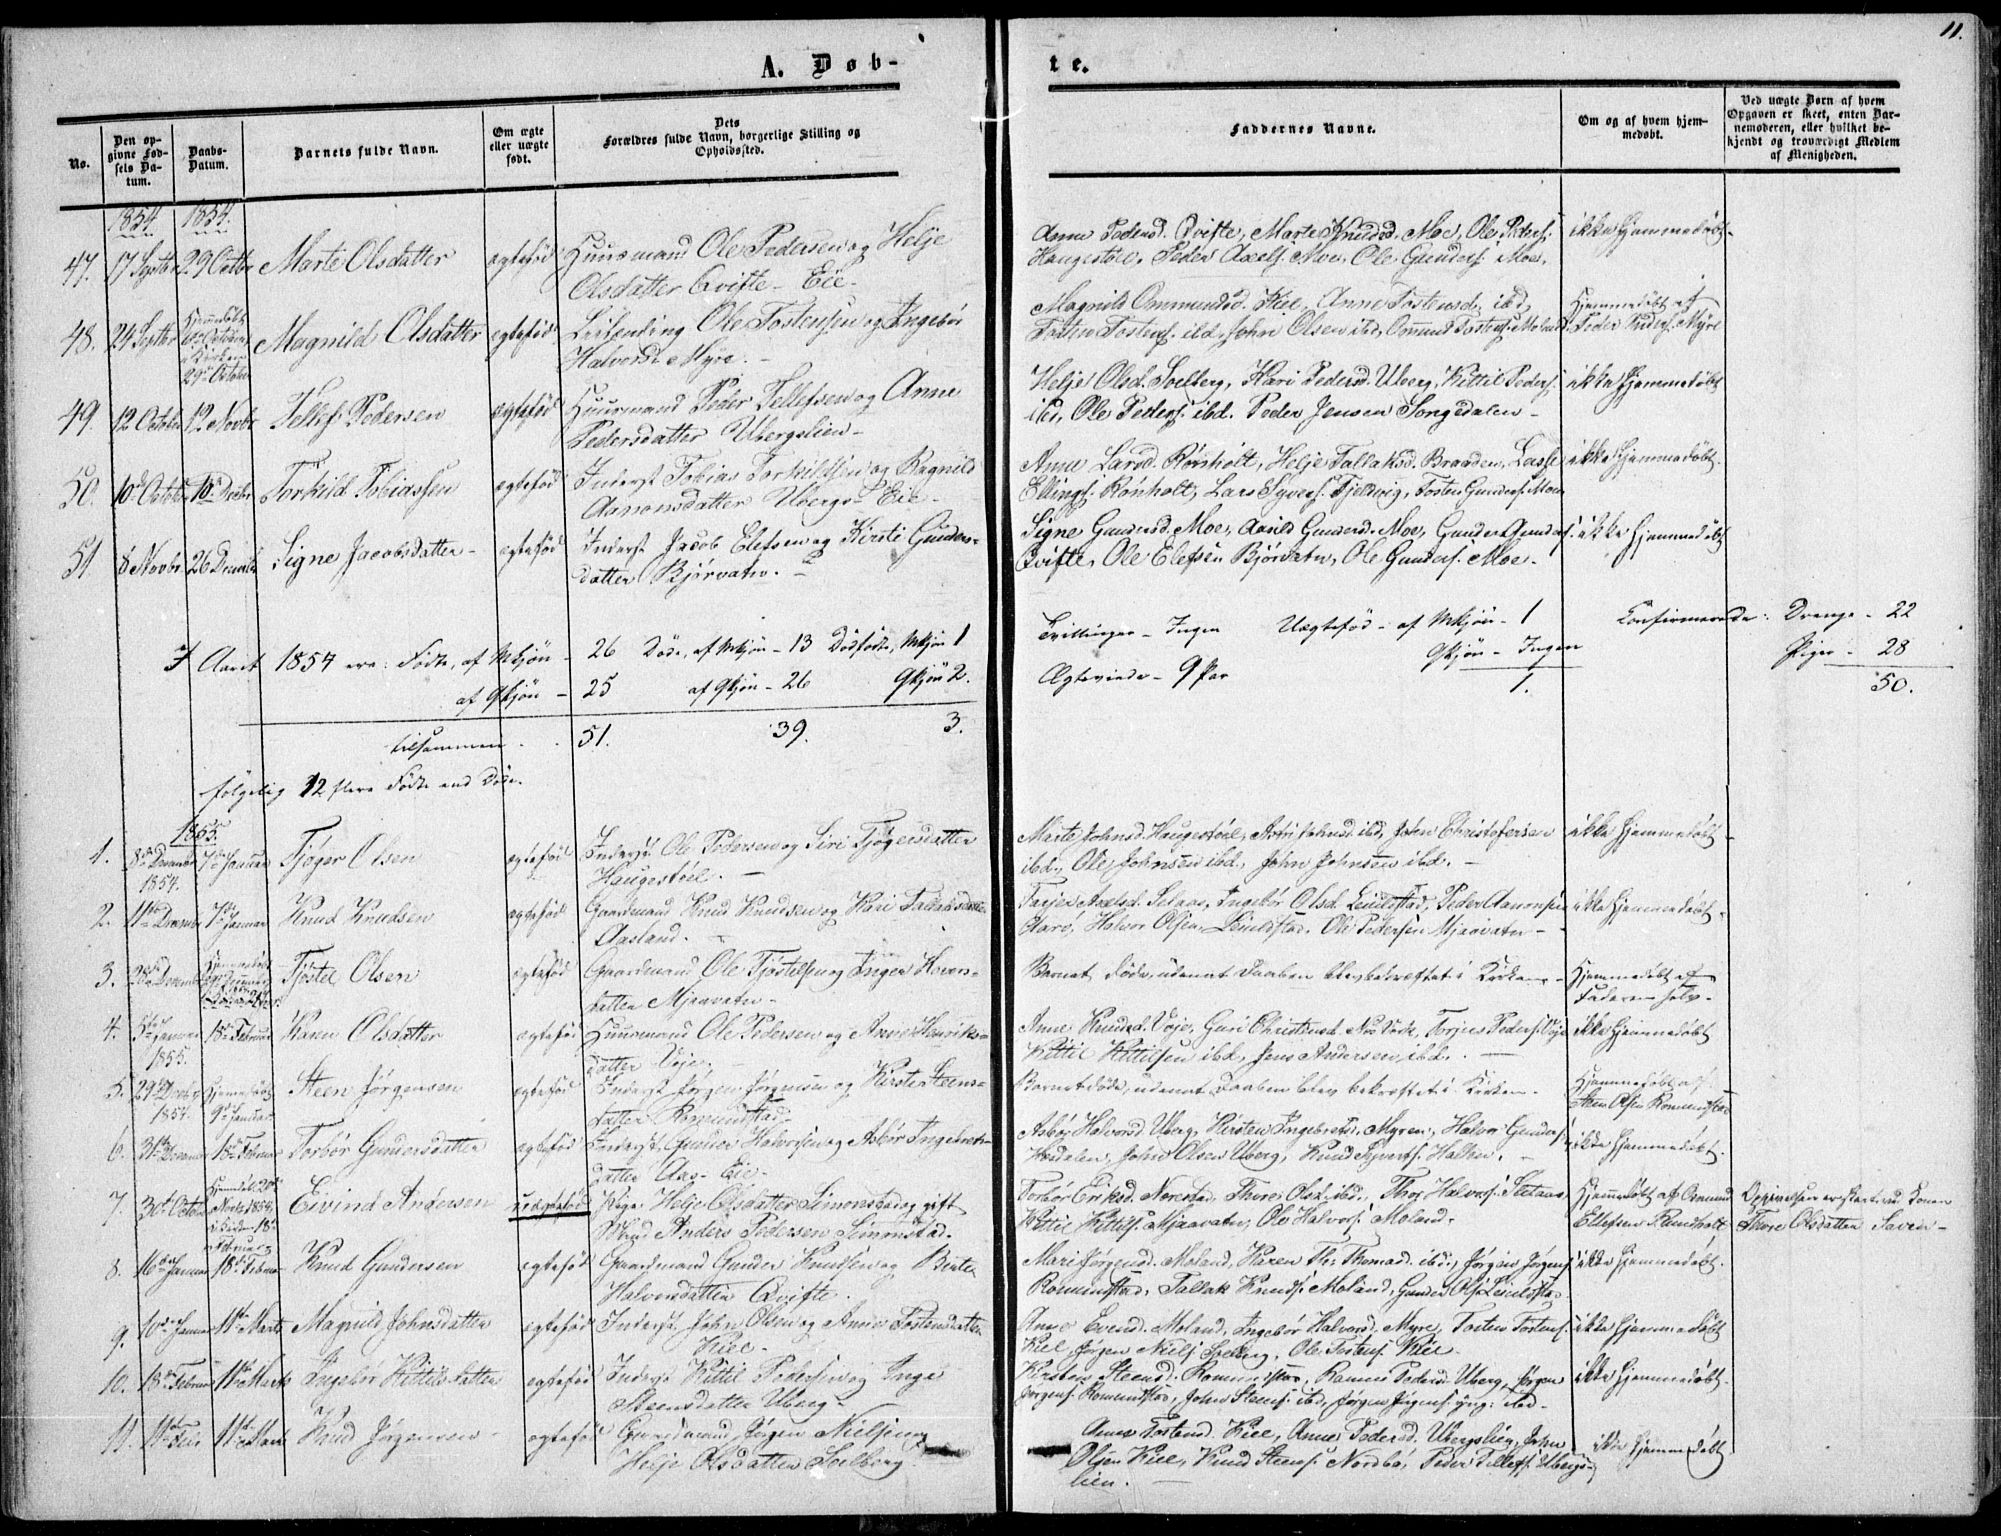 11.
A. Døb-
te.
No.
Den op-
givne Fød-
sels Da-
tum.
Daabs-
Datum.
Barnets fulde Navn.
Om ægte
eller uægte
født.
Dets
Forældres fulde Navn, borgerlige Stilling og
Opholdssted.
Faddernes Navne.
Om og af hvem hjem-
medøbt.
Ved uægte Børn af hvem
Opgaven er skeet, enten Bar-
nemoderen, eller hvilket be-
kjendt og troværdigt Medlem
af Menigheden.
1854. 1854.
47. 17 Septbr 29 Octbr Marte Olsdatter ægtefød Huusmand Ole Pedersen og Helje
Olsdatter Qvifte-Eie-
Anne Pedersd. Qvifte, Marte Knudsd. Moe, Ole Peders.
Haugestøl, Peder Axels. Moe, Ole Gunders. Moe.
ikke hjemmedøbt.
48. 24 Septbr Hjemdøbt
October
i Kirken
29 October
Magnild Olsdatter ægtefød Leilending Ole Tostensen og Ingebør
Halvorsd. Myre. -
Magnild Ommundsd. Kiel, Anne Tostensd. ibd,
Tosten Tostens. ibd, John Olsen ibd, Ommund Tostens. Moland.
Hjemmedøbt af
Peder Peders. Myre
49. 12 October 12 Novbr Tellef Pedersen ægtefød Huusmand Peder Tellefsen og Anne
Pedersdatter Ubergslien-
Helje Olsd. Solberg, Kari Pedersd. Uberg, Kittil Peders.
ibd, Ole Peders. ibd. Peder Jensen Songedalen-
ikke hjemmedøbt
50. 10 October 10 Decbr Torkild Tobiassen ægtefød Inderst Tobias Torkildsen og Ragnild
Aanonsdatter Ubergs-Eie-
Anne Larsd. Rønholt, Helje Tallaksd. Braaden, Lasse
Ellings. Rønholt, Lars Syvers. Fjeldvig, Tosten Gunders. Moe
ikke hjemmedøbt.
51. 8 Novbr 26 Decembr Signe Jacobsdatter- ægtefød Inderst Jacob Elefsen og Kirsti Gunders-
datter Bjørvatn. -
Signe Gundersd. Moe, Aasild Gundersd. Moe, Gunder Gunders.
Qvifte, Ole Elefsen Bjørvatn, Ole Gunders. Moe.
ikke hjemmedøbt
I Aaret 1854 ere: Fødte, af Mkjøn - 26 Døde, af Mkjøn - 13 Dødfødte, Mkjøn 1
af Qkjøn - 25 af Qkjøn - 26 Qkjøn 2.
tilsammen . . 51. 39. 3.
følgelig 12 flere Fødte end Døde.
Tvillinger - Ingen Uægtefød - af Mkjøn - 1 Confirmerede: Drenge - 22
Qkjøn - Ingen Piger - 28
Ægteviede - 9 Par 1. 50.
1855.
1. 8de December
1854.
7de Januar Tjøger Olsen ægtefød Inderst Ole Pedersen og Siri Tjøgersdatter
Haugestøel. -
Marte Johnsd. Haugestøel, Astri Johnsd. ibd, John Christofersen
ibd, Ole Johnsen ibd., John Johnsen ibd. -
ikke hjemmedøbt-
2. 11te December 7de Januar Knud Knudsen ægtefød Gaardmand Knud Knudsen og Kari Tallaksdatter
Aasland. -
Axelsd. Selaas, Ingebør Olsd. Leiulfstad, Peder Aanonsen
Halvor Olsen Leiulfstad. Ole Pedersen Mjaavatn-
ikke hjemmedøbt.
3. December Hjemmedøbt
Tjøstel Olsen ægtefød Gaardmand Ole Tjøstelsen og Inger Hovers-
datter Mjaavatn-
Barnet døde, udenat Daaben blev bekræftet i Kirken-
Hjemmedøbt af
Faderen selv.
4. 5te Januar
1855.
18de Februar Karen Olsdatter ægtefød Huusmand Ole Pedersen og Anne Henriks-
datter Veje.
Anne Knudsd. Veje, Guri Christensd. Torjus Peders. Veje
Kittil Kittilsen ibd, Jens Andersen ibd. -
ikke hjemmedøbt
5. 29de Decbr
1854.
Hjemmedøbt
9de Januar.
Steen Jørgensen ægtefød Inderst Jørgen Jørgensen og Kirsten Steens-
datter Romundstad
Barnet døde, udenat Daaben blev bekræftet i Kirken-
Hjemmedøbt af
Steen Olsen Romundstad
6. 31te December 18de Februar Torbør Gundersdatter ægtefød Inderst Gunder Halvorsen og Asbør Ingebrets-
datter Aas-Eie-
Asbør Halvorsd. Uberg, Kirsten Ingebretsd. Myren, Halvor Gunders.
John Olsen Uberg, Knud Syverts. -
ikke hjemmedøbt.
7. 30te October Hjemdøbt 20de
Novbr 1854,
i Kirken 18de
Februar
Eivind Andersen uægtefød Pige Helje Olsdatter Simonstad og gift
Mand Anders Pedersen Simonstad.
Torbør Eriksd. Thore Olsd. ibd., Thor Halvors. Selaas,
Kittil Kittils. Mjaavatn, Ole Halvors. Moland.
Hjemmedøbt af Omund
Ellefsen Rundholt
Opgivelsen er skeet ved Konen
Thore Olsdatter Saven-
8. 16de Januar 18de Februar Knud Gundersen ægtefød Gaardmand Gunder Knudsen og Berte
Halvorsdatter Qvifte.
Mari Jørgensd. Moland, Karen Th. Thomasd. ibd., Jørgen Jørgens.
Romundstad, Tallak Knuds. Moland, Gunder Ols. Leiulfstad.
ikke hjemmedøbt.
9. 10de Januar 11te Marts Magnild Johnsdatter ægtefød Inderst John Olsen og Anne Tostensdatter
Kiel.
Anne Evensd. Moland, Ingebør Halvorsd. Myre, Tosten Tostens.
Kiel, Jørgen Niels. Solberg, Ole Tostens. Kiel.
ikke hjemmedøbt
10. 18de Februar 11te Marts Ingebør Kittilsdatter ægtefød Inderst Kittil Pedersen og Inge
Steensdatter Uberg-
Kirsten Steensd. Romundstad, Pedersd. Uberg, Jørgen
Jørgens. Romundstad, John Steens. ibd, Jørgen Jørgens. yng. ibd.
ikke hjemmedøbt.
11. 11te Febr 11te Marts Knud Jørgensen - ægtefød Gaardmand Jørgen Nielsen og
Helje Olsdatter Solberg.
Anne Tostensd. Kiel, Anne Pedersd. Ubergslien, John
Olsen Kiel, Knud Steens. Nordbø, Peder Tellefs. Ubergs-
lien. -
ikke hjemmedøbt